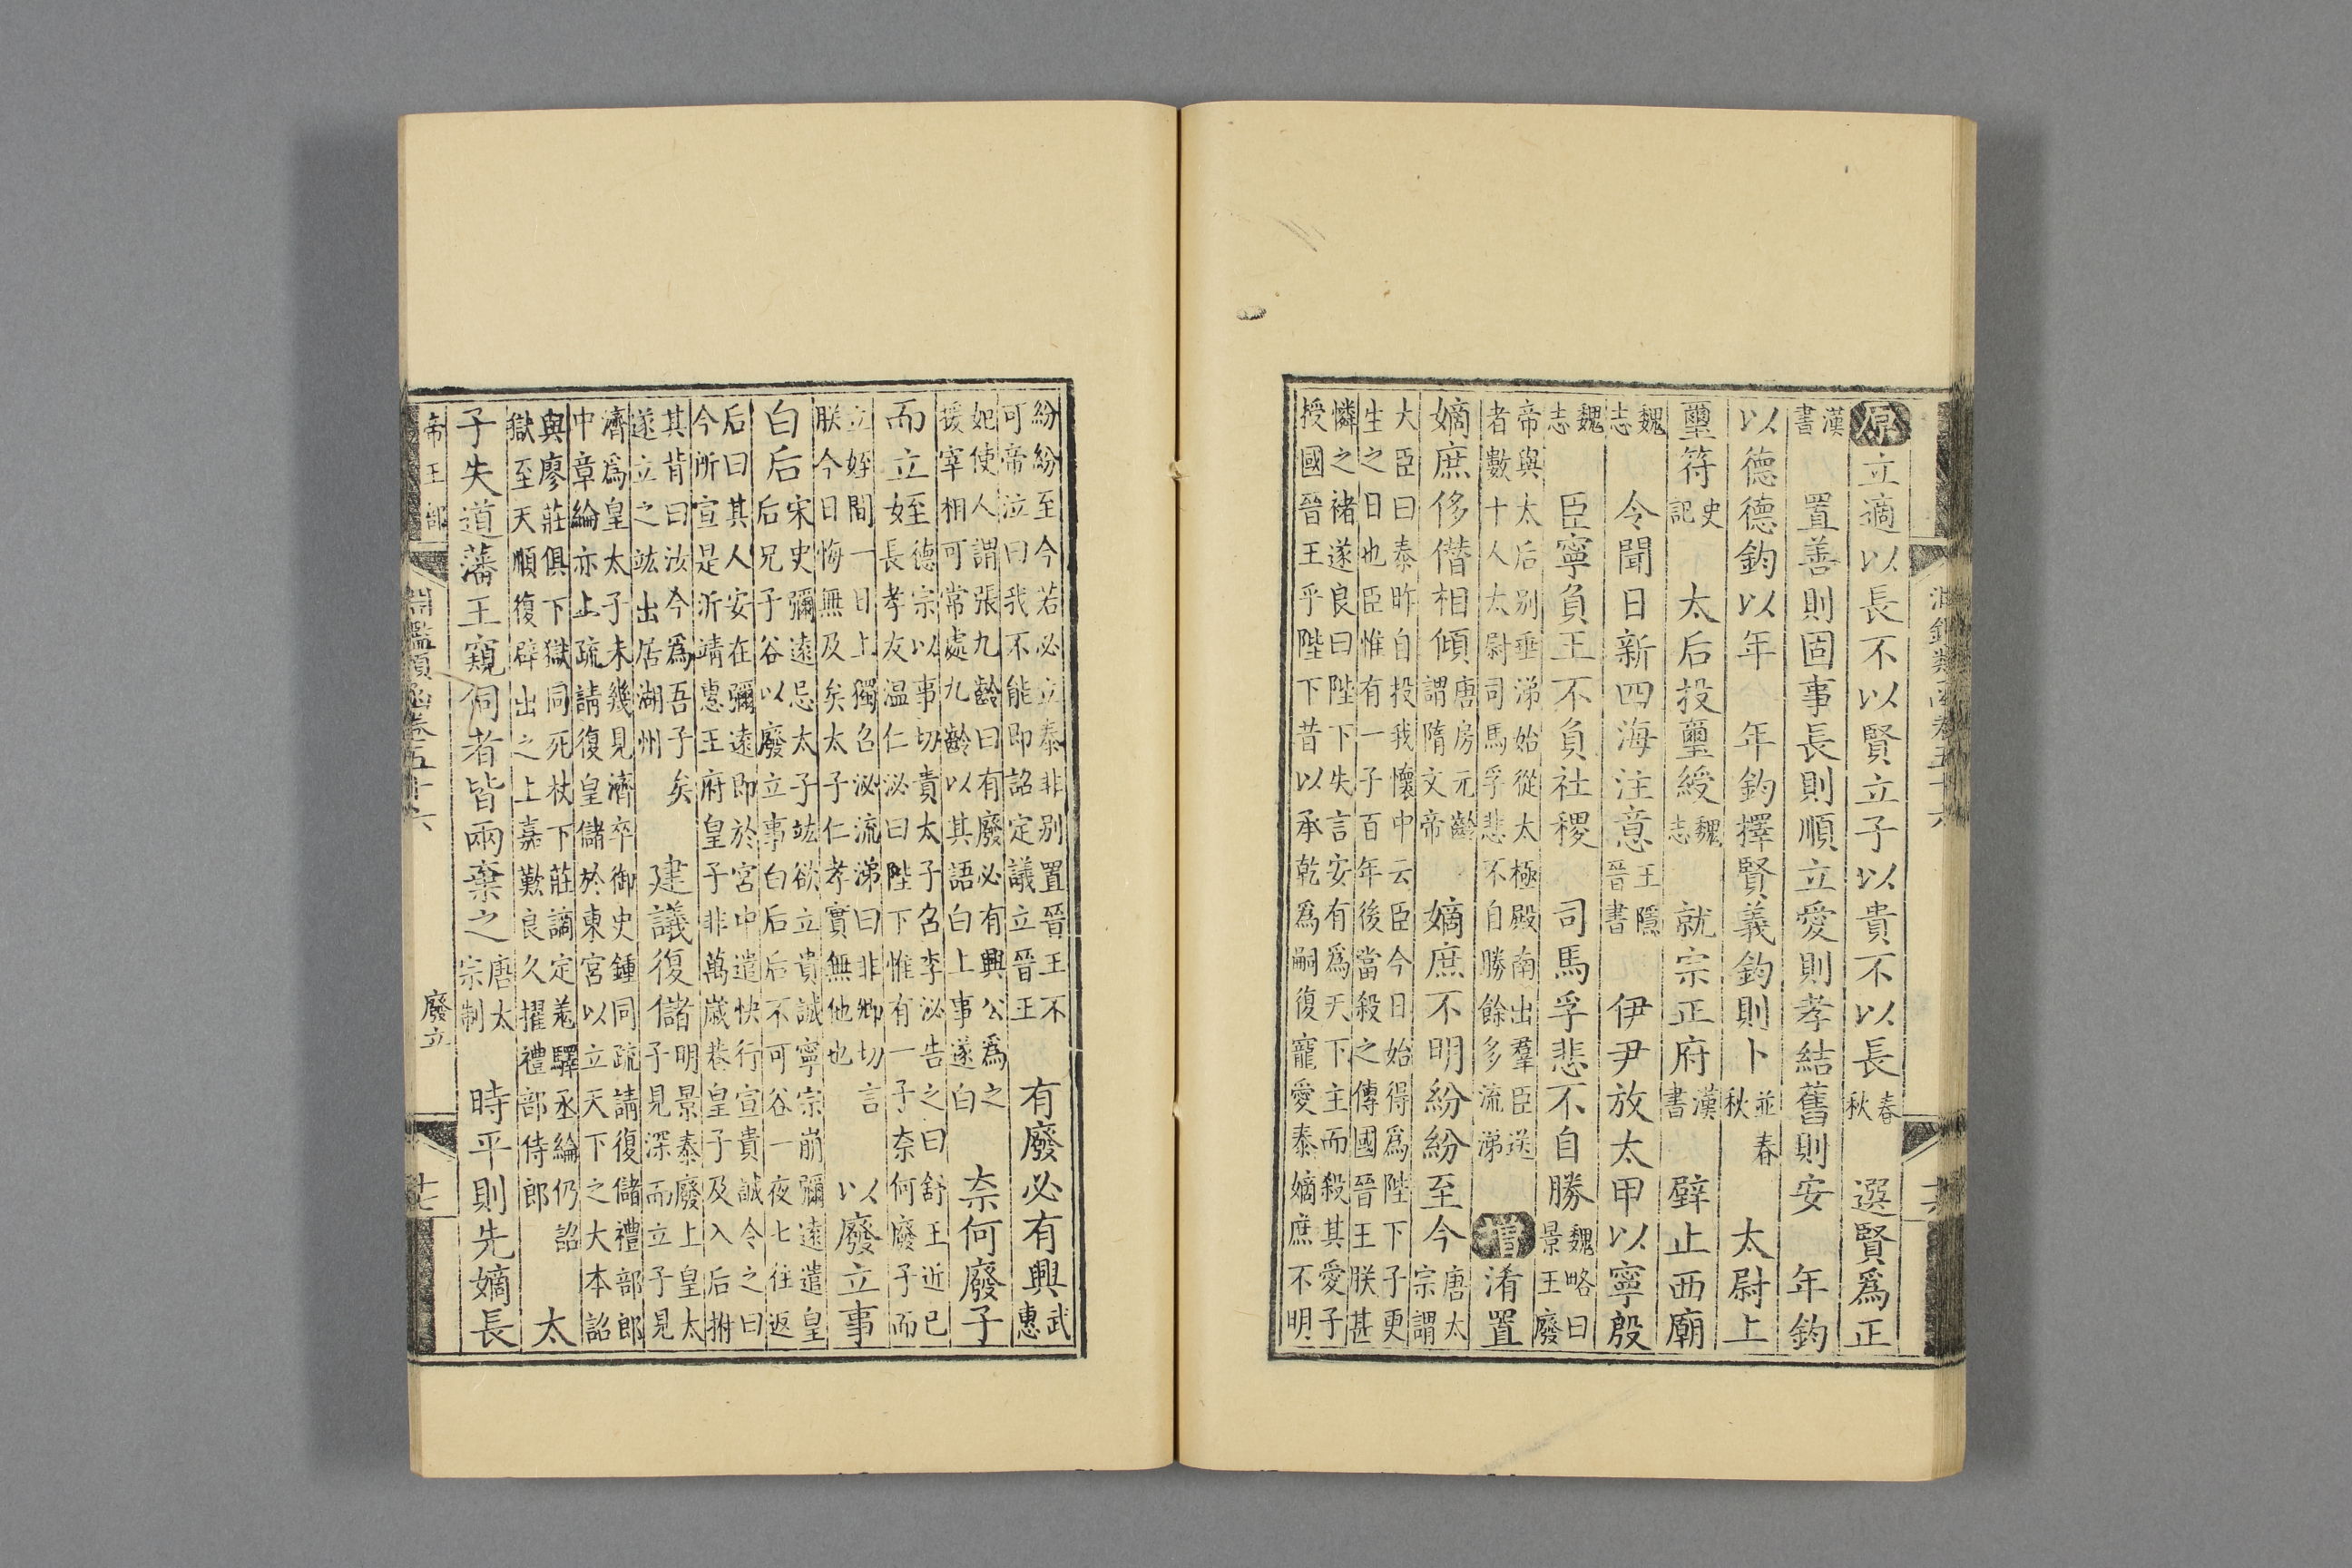 淵鑑類函卷五十六
原立適以長不以賢立子以貴不以長春秋 選賢爲正
漢書 置善則固事長則順立愛則孝結舊則安 年鈞
以德德鈞以年 年鈞擇賢義鈞則卜並春秋 太尉上
璽符史記 太后投璽綬魏志 就宗正府漢書 壁止西廟
魏志 令聞日新四海注意王隱晉書 伊尹放太甲以寧殷
魏志 臣寧負王不負社稷 司馬孚悲不自勝魏略曰景王廢
帝與太后别垂涕始從太極殿南出羣臣送者數十人太尉司馬孚悲不自勝餘多流涕 增淆置
嫡庶侈僣相傾唐房元齡謂隋文帝 嫡庶不明紛紛至今唐太宗謂
大臣曰泰昨自投我懷中云臣今日始得爲陛下子更生之日也臣惟有一子百年後當殺之傳國晉王朕甚
憐之褚遂良曰陛下失言安有爲天下主而殺其愛子授國晉王乎陛下昔以承乾爲嗣復寵愛泰嫡庶不明
紛紛至今若必立泰非别置晉王不可帝泣曰我不能即詔定議立晉王 有廢必有興武惠
妃使人謂張九齡曰有廢必有興公爲之援宰相可常處九齡以其語白上事遂白 奈何廢子
而立姪德宗以事切責太子召李泌告之曰舒王近已長孝友温仁泌曰陛下惟有一子奈何廢子而
立姪間一日上獨召泌流涕曰非卿切言朕今日悔無及矣太子仁孝實無他也 以廢立事
白后宋史彌遠忌太子竑欲立貴誠寧宗崩彌遠遣皇后兄子谷以廢立事白后后不可谷一夜七往返
后曰其人安在彌遠即於宮中遣快行宣貴誠令之曰今所宣是沂靖惠王府皇子非萬歲巷皇子及入后拊
其背曰汝今爲吾子矣遂立之竑出居湖州 建議復儲明景泰廢上皇太子見深而立子見
濟爲皇太子未幾見濟卒御史鍾同疏請復儲禮部郎中章綸亦上疏請復皇儲於東宮以立天下之大本詔
與廖莊俱下獄同死杖下莊謫定羗驛丞綸仍詔獄至天順復辟出之上嘉歎良久擢禮部侍郎 太
子失道藩王窺伺者皆兩棄之唐太宗制 時平則先嫡長
帝王部
淵鑑類函卷五十六
廢立